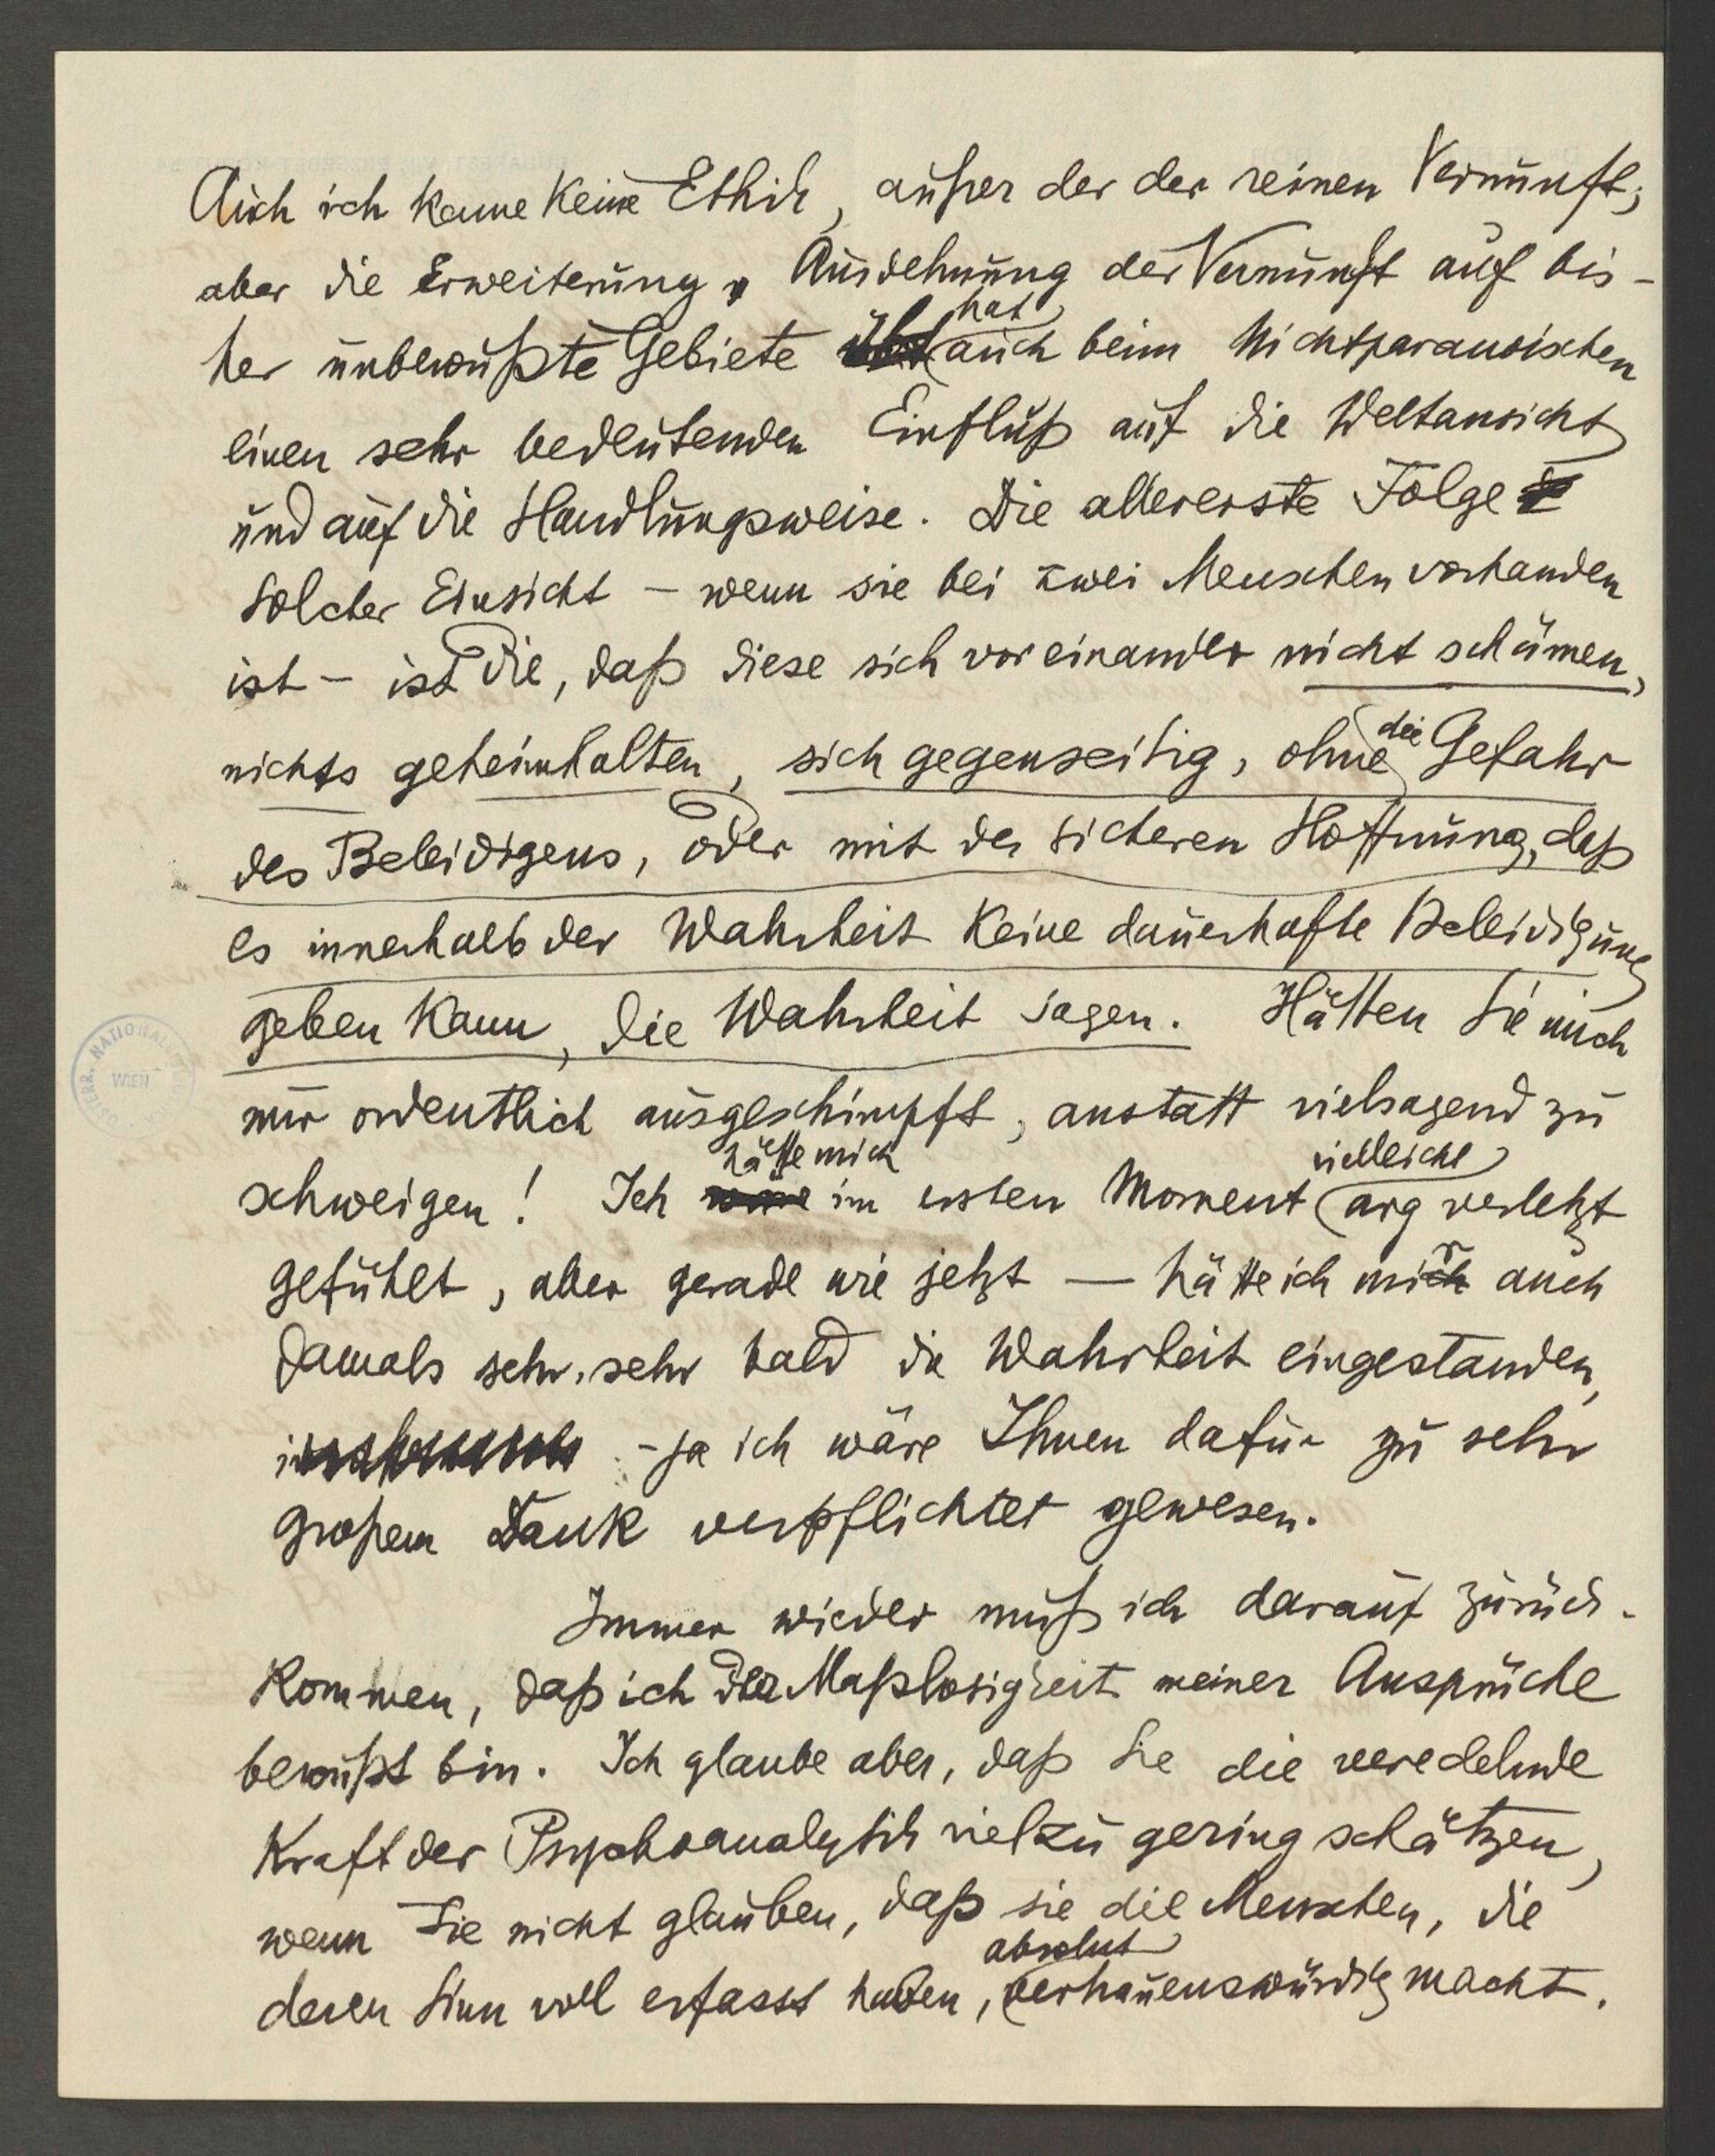 Auch ich kenne keine Ethik, außer der der reinen Vernunft;
aber die Erweiterung u Ausdehnung der Vernunft auf bis-
her unbewußte Gebiete hat auch beim Nichtparanoischen
einen sehr bedeutenden Einfluß auf die Weltansicht
und auf die Handlungsweise. Die allererste Folge
solcher Einsicht – wenn sie bei zwei Menschen vorhanden
ist – ist die, daß diese sich voreinander nicht schämen,
nichts geheimhalten, sich gegenseitig, ohne die Gefahr
des Beleidigens, oder mit der sicheren Hoffnung, daß
es innerhalb der Wahrheit keine dauerhafte Beleidigung
geben kann, die Wahrheit sagen. Hätten Sie mich
nur ordentlich ausgeschimpft, anstatt vielsagend zu
schweigen! Ich hätte mich im ersten Moment vielleicht arg verletzt
gefühlt, aber gerade wie jetzt — hätte ich mir auch
damals sehr, sehr bald die Wahrheit eingestanden,
- ja ich wäre Ihnen dafür zu sehr
großem Dank verpflichtet gewesen.
Immer wieder muß ich darauf zurück-
kommen, daß ich der Maßlosigkeit meiner Ansprüche
bewußt bin. Ich glaube aber, daß Sie die veredelnde
Kraft der Psychoanalytik viel zu gering schätzen,
wenn Sie nicht glauben, daß sie die Menschen, die
deren Sinn voll erfasst haben, absolut vertrauenswürdig macht.
ÖSTERR. NATIONAL
WIEN